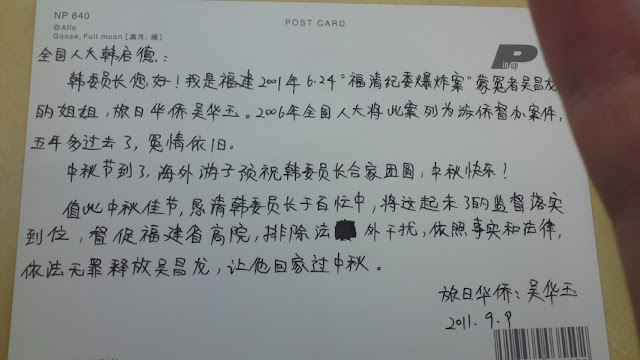 NP 840
©Aflo
Goose, Full moon【満月、雁】
POST CARD
P
全国人大韩启德:
韩委员长您好!我是福建2001年6·24“福清纪委爆炸案”蒙冤者吴昌龙
的姐姐,旅日华侨吴华玉。2006年全国人大将此案列为涉侨督办案件,
五年多过去了,冤情依旧。
中秋节到了,海外游子预祝韩委员长合家团圆,中秋快乐!
值此中秋佳节,恳请韩委员长于百忙中,将这起未了的监督落实
到位,督促福建省高院,排除法外干扰,依照事实和法律,
依法无罪释放吴昌龙,让他回家过中秋。
旅日华侨:吴华玉
2011.9.9